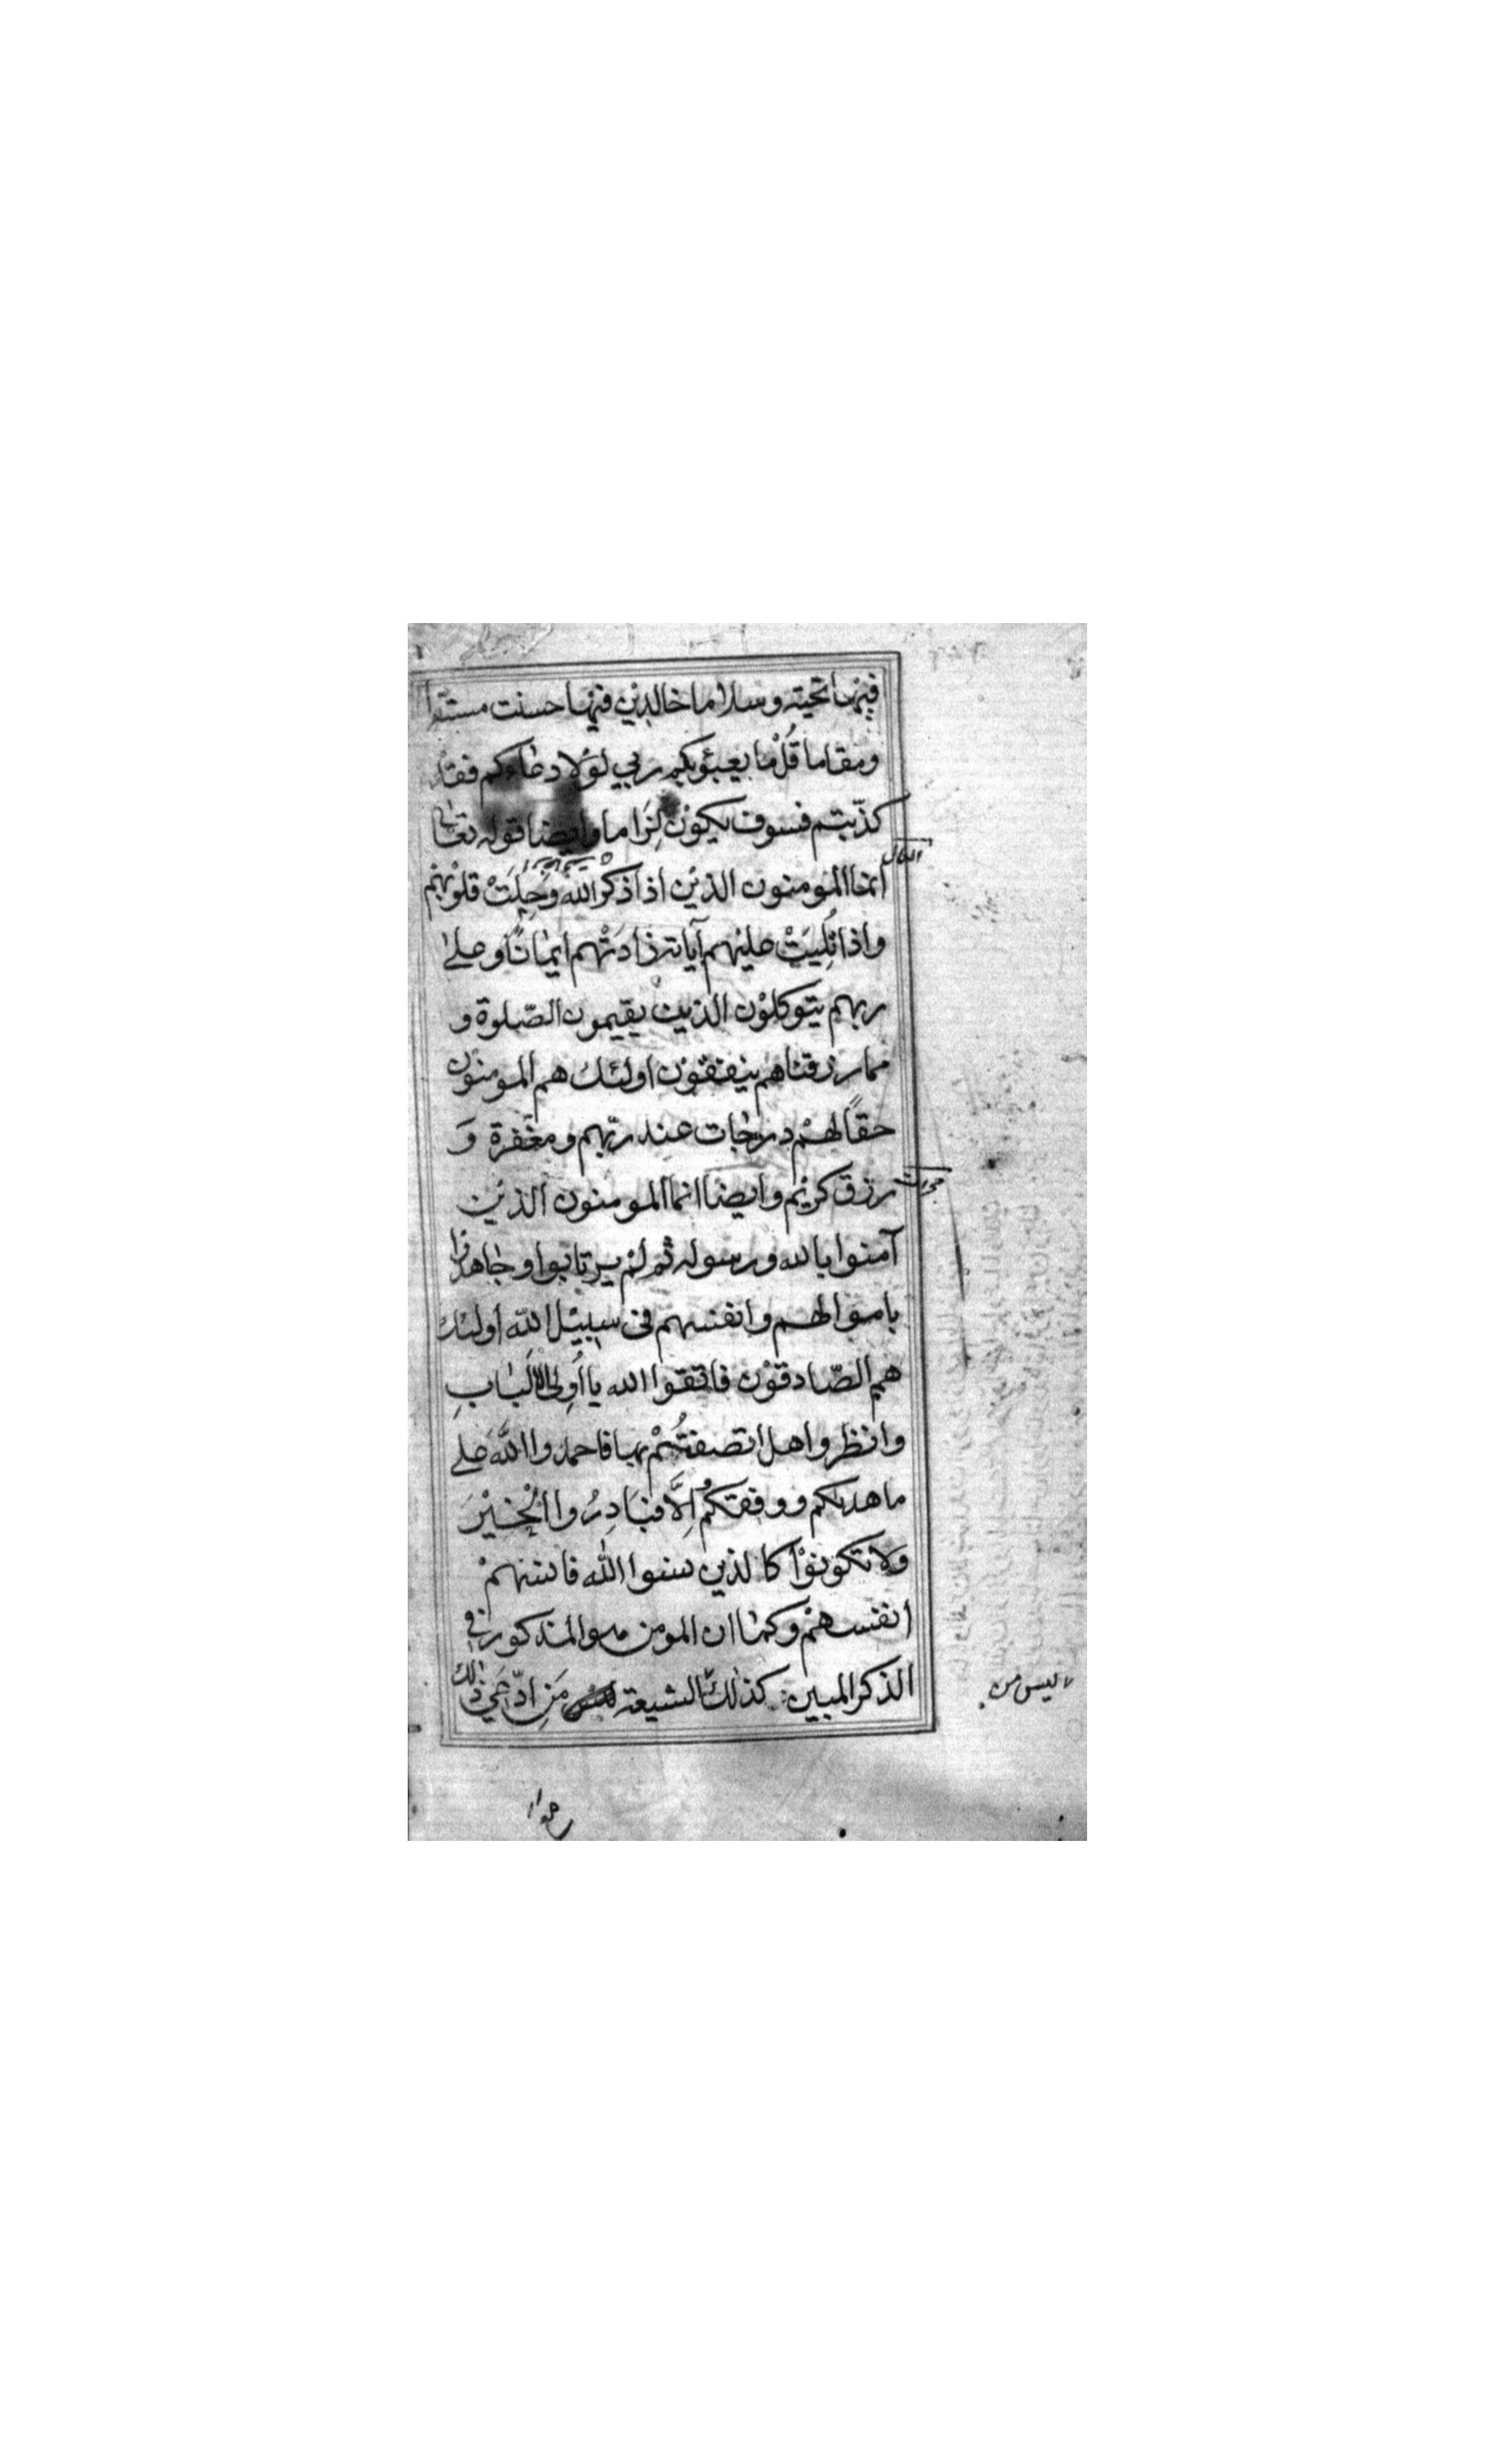 فيها تحية وسلاما خالدين فيها حسنت مستقرا
ومقاما قُلْ ما يعبئو بكم ربي لوْلا دعاءكم فقد
كذّبتم فسوف يكوْن لِزَاما وايضا قوله تعالى
انفال
انما المومنون الذيْن اذا ذكْر الله وَجِلَتْ قلوْبهم
واذا تُلِيَتْ عليهم آياته زادَتْهم ايمانًا وعلى
ربهم يتوكلوْن الذين يقيمون الصّلوة و
مما رزقناهم ينفقوْن اولئك هم المومنون
حقًا لهمْ درجات عند ربّهم ومغفرة وَ
حجرات
رزق كريْم وايضا انما المومنون الذيْن
آمنوا بالله ورسوله ثم لمْ يرتابوا وجاهدوا
باموالهم وانفسهم في سبيْل الله أولئك
هم الصّادقوْن فاتقوا الله يا أُولِى الالْبَابِ
وانظروا هل اتصفتُمْ بها فاحمدوا اللَّهَ على
ما هديكم ووفقكُم وِالَّا فبَادِرُوا الْخَيْرَ
ولا تكونوْا كالذين نسوا الله فانسهمْ
انفسهمْ وكما ان المومن هو المذكور في
الذكر المبين كذلك الشيعة مَنِ ادّعَى ذلك
ليس من